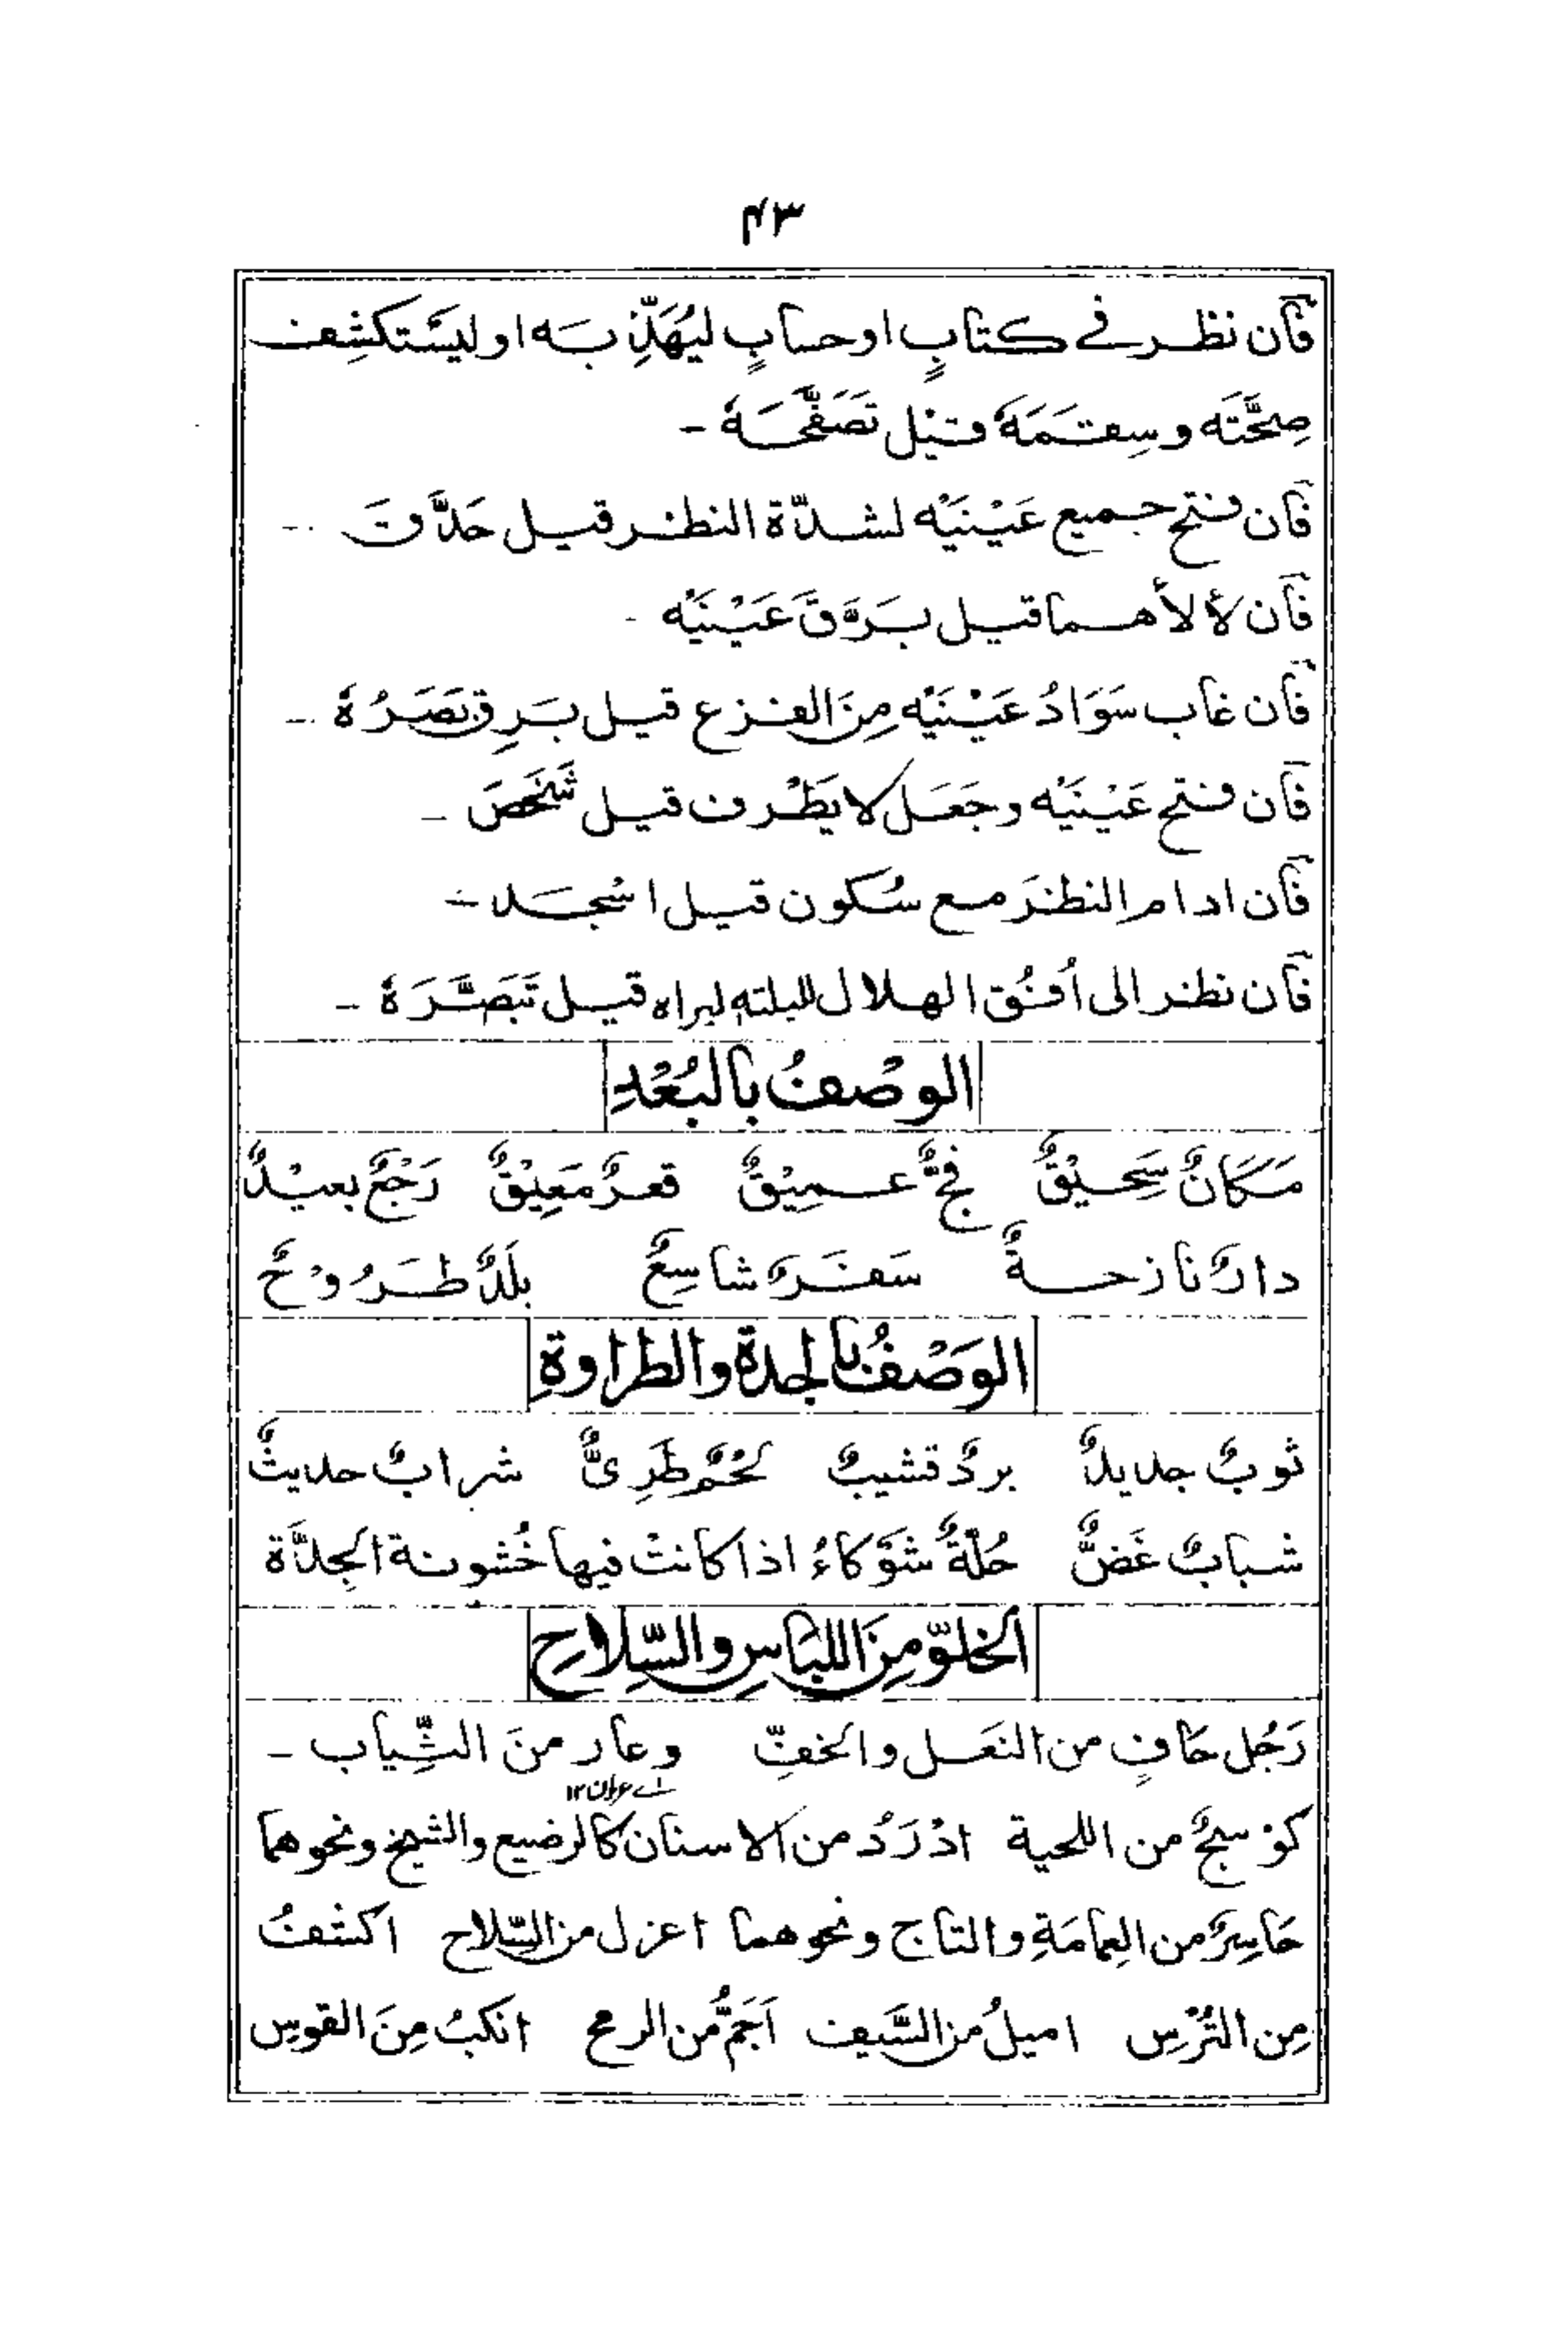 ۴۳
فَاِن نظر فى كتابٍ او حسابٍ ليُهَذِّبه او ليَسْتكشِف
صِحَّتَه وسِقَمَهٗ قيل تَصَفَّحَهٗ -
فَان فتح جميع عَيْنَيْه لشدّة النظر قيل حَدَّقَ -
فَان لألأهما قيل بَرَّقَ عَيْنَيْه -
فَان غاب سَوَادُ عَيْنَيْه مِنَ الفزع قيل بَرِق بَصَرُهٗ -
فَان فتح عَيْنَيْه وجَعَل لا يَطْرف قيل شَخَصَ -
فَان ادام النظرَ مع سُكون قيل اسْجد -
فَان نظر الى اُفُق الهلال لليلته ليراه قيل تَبَصَّرَهٗ -
الوصْفُ بالبُعْدِ
مَكَانٌ سَحِيْقٌ فجٌّ عميْقٌ قعرٌ مَعِيْقٌ رَجْعٌ بعيْدٌ
دارٌ نازحةٌ سَفَرٌ شاسِعٌ بلَدٌ طَرُوْحٌ
الوَصْفُ بالجدة والطراوةِ
ثوبٌ جديدٌ بردٌ قشيبٌ لحْمٌ طَرِىٌّ شرابٌ حديثٌ
شبابٌ غَضٌّ حُلّةٌ شَوْكاءُ اذا كانتْ فيها خُشونة الجِدَّة
الخلوّ مِنَ اللباسِ والسِّلاحِ
رَجُل حَافٍ من النعَل والخفِّ وعار منَ الثِّياب -
اے عریان ۱۲
كوْسجٌ من اللحية ادْرَدُ من الاسنان كالرضيع والشيخ ونحوهما
حَاسِرٌ من العِمامَةِ والتاج ونحوهما اعزل من السِّلاح اكشفُ
مِن التُرْس اميلُ من السَّيف اَجَمُّ من الرمح انكبُ مِنَ القوسِ